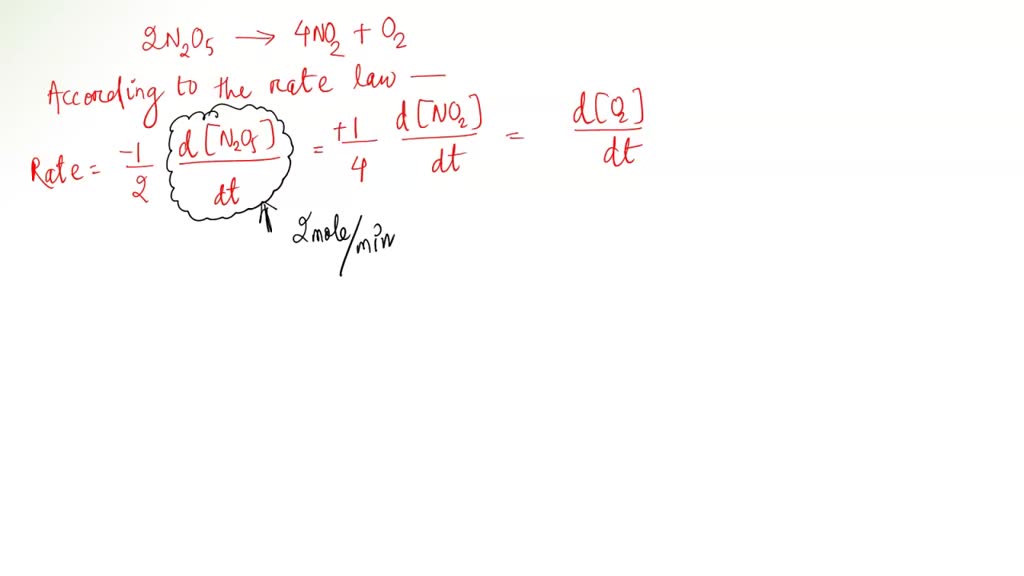 2N₂O₅ → 4NO₂ + O₂
According to the rate law —
Rate = -1/2 d[N₂O₅]/dt = +1/4 d[NO₂]/dt = d[O₂]/dt
2mole/min